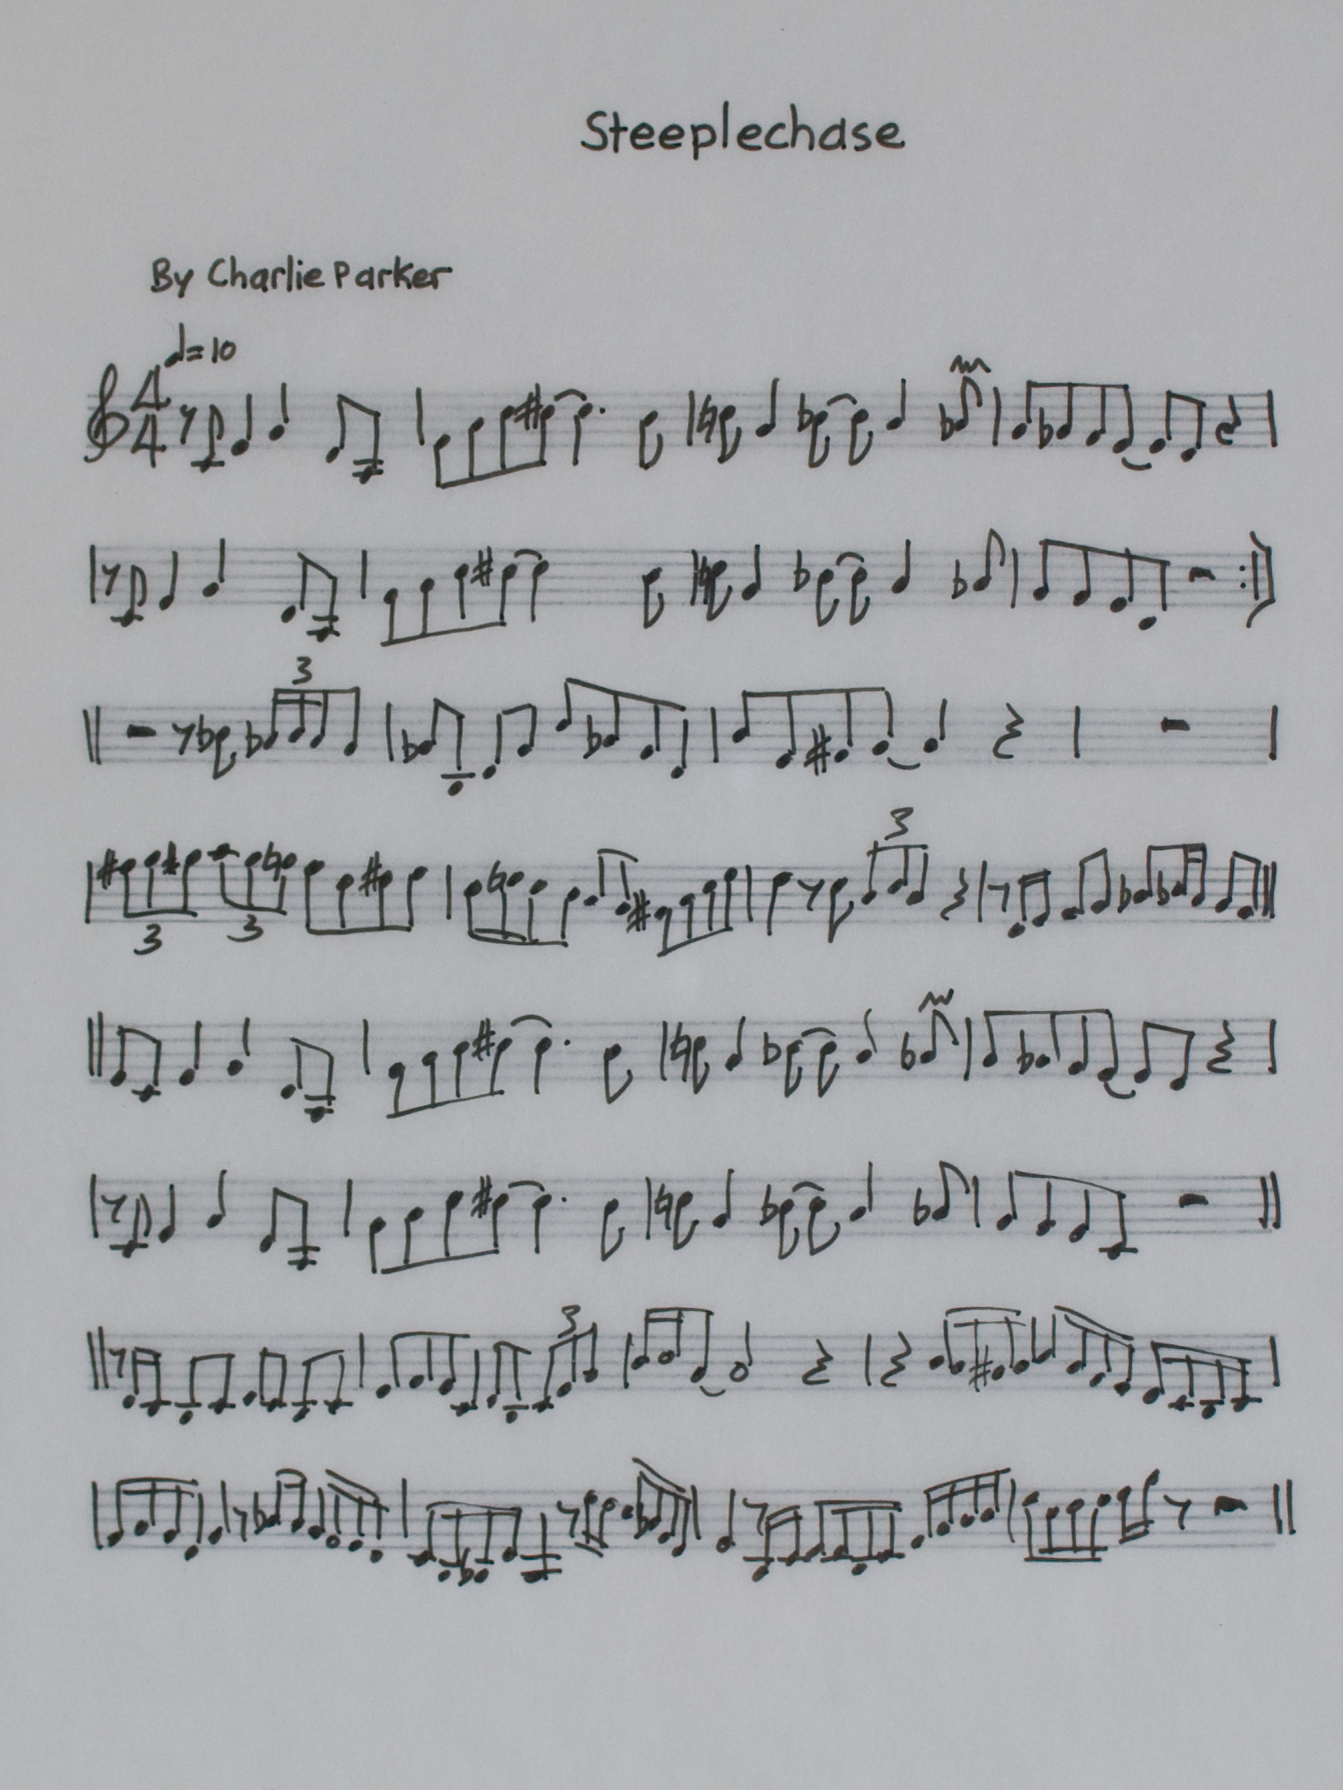 Steeplechase
By Charlie Parker
♩=10
4
4
3
3
3 3
3